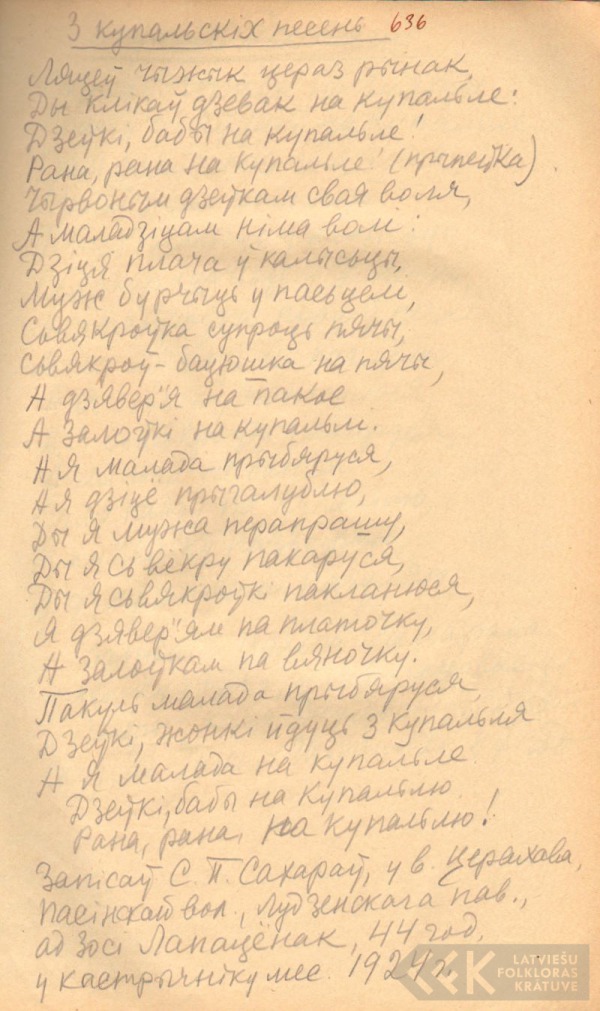 З купальскіх песень 636
Ляцеў чыжык цераз рынак,
Ды клікаў дзевак на купальле:
Дзеўкі, бабы на купальле!
Рана, рана на купальле! (прыпеўка).
Чырвоным дзеўкам свая воля,
А маладзіцам німа волі:
Дзіця плача ў калысьцы,
Муж бурчыць у пасьцелі,
Сьвякроўка супроць пячы,
Сьвякроў-бацюшка на пячы,
А дзявер'я на пакое
А залоўкі на купальлі.
А я малада прыбяруся,
А я дзіцё прыгалублю,
Ды я мужа перапрашу,
Ды я сьвёкру пакаруся,
Ды я сьвякроўкі пакланюся,
Я дзявер'ям па платочку,
А залоўкам па вяночку.
Пакуль малада прыбяруся,
Дзеўкі, жонкі йдуць з купальля
А я малада на купальле.
Дзеўкі, бабы на купальлю
Рана, рана, на купальлю!
Запісаў С. П. Сахараў, у в. Церахова,
Пасінскай вол., Лудзенскага пав.,
ад Зосі Лапацёнак, 44 год,
у кастрычніку мес. 1924 г.
LATVIEŠU
FOLKLORAS
KRĀTUVE